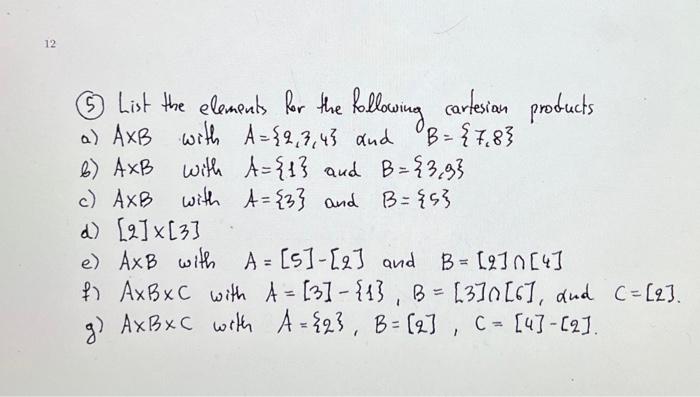 12
⑤ List the elements for the following cartesian products
a) A×B with A={2,3,4} and B={7,8}
b) A×B with A={1} and B={3,9}
c) A×B with A={3} and B={5}
d) [2]×[3]
e) A×B with A=[5]-[2] and B=[2]∩[4]
f) A×B×C with A=[3]-{1}, B=[3]∩[6], and C=[2].
g) A×B×C with A={2}, B=[2], C=[4]-[2].